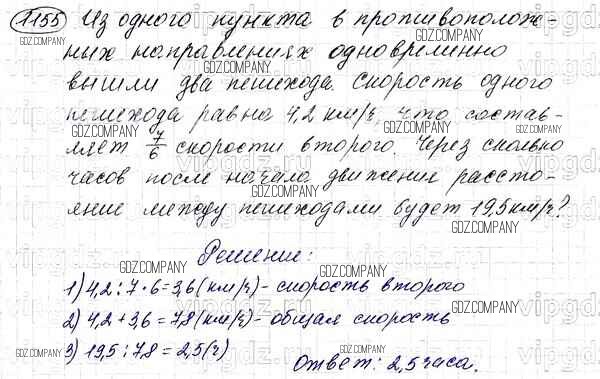 1155 Из одного пункта в противополож-
ных направлениях одновременно
вышли два пешехода. Скорость одного
пешехода равна 4,2 км/ч, что состав-
ляет 7/6 скорости второго. Через сколько
часов после начала движения рассто-
яние между пешеходами будет 19,5 км/ч?
Решение:
1) 4,2 : 7 · 6 = 3,6 (км/ч) - скорость второго
2) 4,2 + 3,6 = 7,8 (км/ч) - общая скорость
3) 19,5 : 7,8 = 2,5 (ч)
Ответ: 2,5 часа.
GDZ.COMPANY
vipgdz.ru